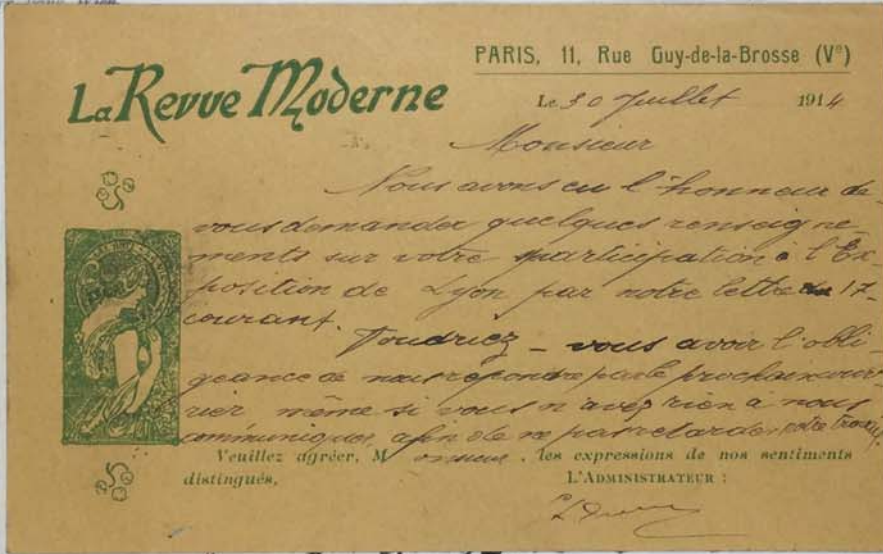 La Revue Moderne
PARIS, 11, Rue Guy-de-la-Brosse (Vᵉ)
Le 30 Juillet 1914
Monsieur
Nous avons eu l'honneur de
vous demander quelques renseigne-
ments sur votre participation à l'Ex-
position de Lyon par notre lettre du 17-
courant.
Voudriez-vous avoir l'obli-
geance de nous répondre par le prochain cour-
rier même si vous n'avez rien à nous
communiquer, afin de ne pas retarder notre travail.
Veuillez agréer, Monsieur, les expressions de nos sentiments
distingués,
L'ADMINISTRATEUR :